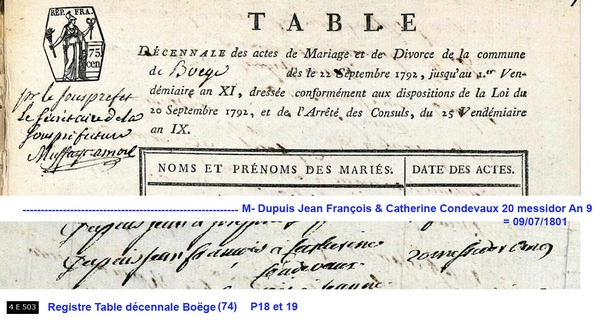 RÉP. FRA.
75.
cen
TABLE
DÉCENNALE des actes de Mariage et de Divorce de la commune
de Boëge dès le 22 Septembre 1792, jusqu'au 1.er Ven-
démiaire an XI, dressée conformément aux dispositions de la Loi du
20 Septembre 1792, et de l'Arrêté des Consuls, du 25 Vendémiaire
an IX.
pr le sous préfet
Le secrétaire de la
sous préfecture
NOMS ET PRÉNOMS DES MARIÉS. DATE DES ACTES.
M- Dupuis Jean François & Catherine Condevaux 20 messidor An 9
= 09/07/1801
Dupuis jean francois a Catherine 20 messidor an 9
Condevaux
4 E 503 Registre Table décennale Boëge (74) P18 et 19